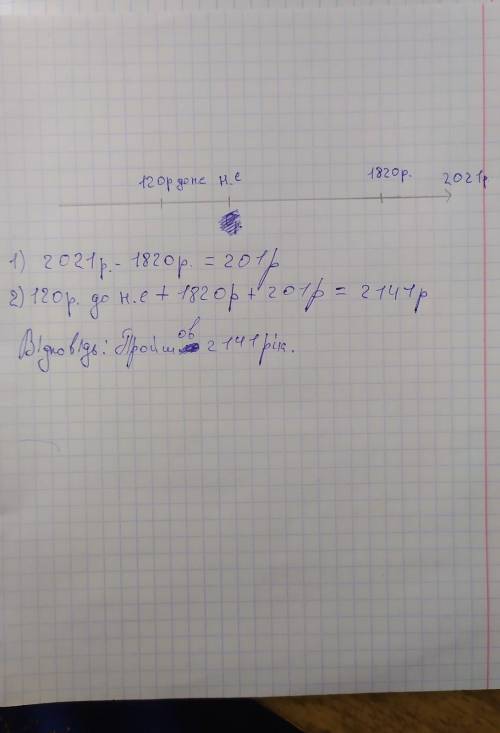 120р до н.е н.е 1820р. 2021р
1) 2021р. - 1820р. = 201р
2) 120р. до н.е + 1820р + 201р = 2141р
Відповідь: Пройшов 2141 рік.